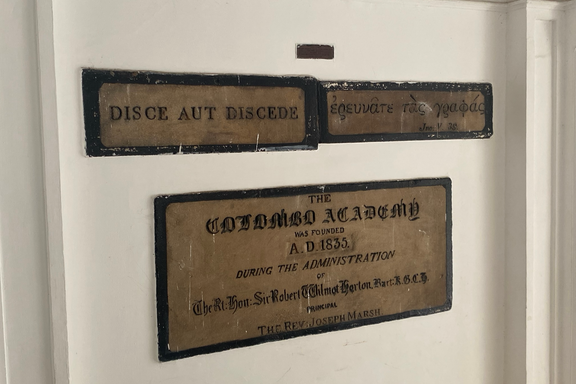 DISCE AUT DISCEDE
ἐρευνᾶτε τὰς γραφάς
Jno. V. 39.
THE
COLOMBO ACADEMY
WAS FOUNDED
A.D. 1835.
DURING THE ADMINISTRATION
OF
The Rt: Hon: Sir Robert Wilmot Horton, Bart: K.G.C.H.
PRINCIPAL
THE REV: JOSEPH MARSH